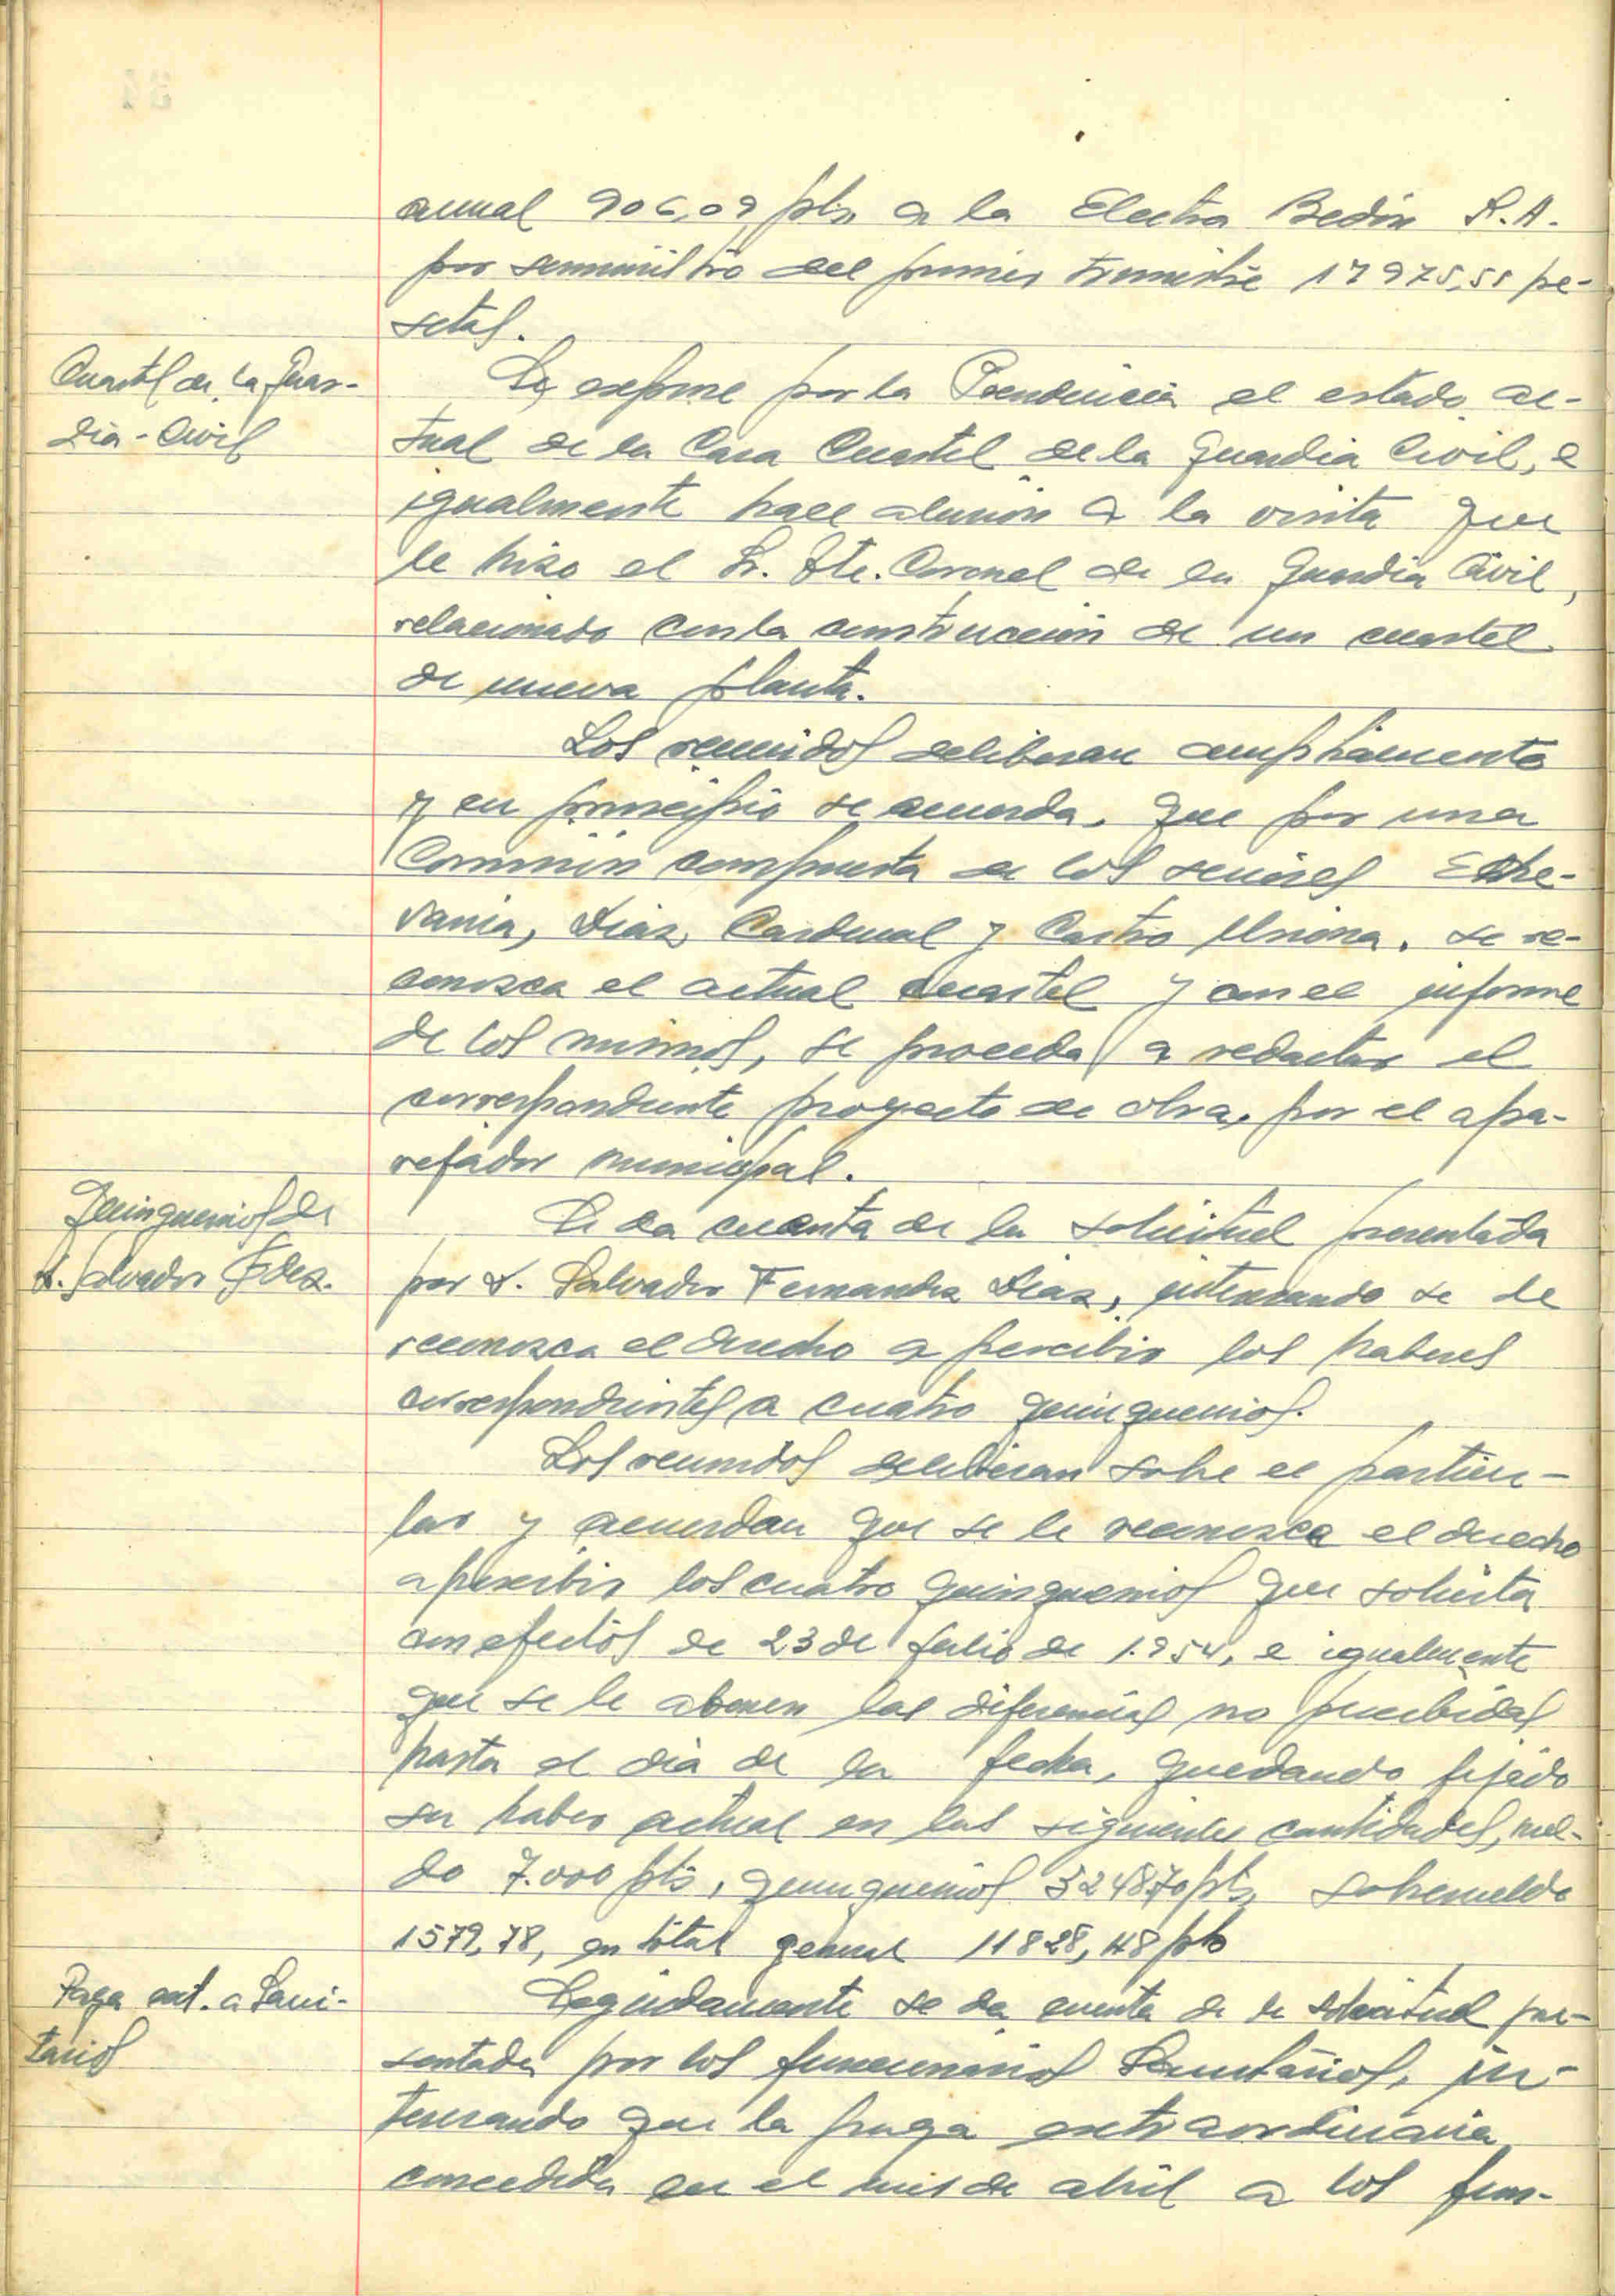 anual 906,09 pts a la Electra Bedón S.A.
por suministro del primer trimestre 17975,55 pe-
setas.
Cuartel de la Guar-
dia-Civil
Se expone por la Presidencia el estado ac-
tual de la Casa Cuartel de la Guardia Civil, e
igualmente hace alusión a la visita que
le hizo el Sr. Tte. Coronel de la Guardia Civil,
relacionado con la construcción de un cuartel
de nueva planta.
Los reunidos deliberan ampliamente
y en principio se acuerda, que por una
Comisión compuesta de los señores Eche-
varria, Diaz, Cardenal y Castro se re-
conozca el actual cuartel y con el informe
de los mismos, se proceda a redactar el
correspondiente proyecto de obra, por el apa-
rejador municipal.
Quinquenios de
D. Salvador Fdez.
Se da cuenta de la solicitud presentada
por D. Salvador Fernandez Diaz, interesando se le
reconozca el derecho a percibir los haberes
correspondientes a cuatro quinquenios.
Los reunidos deliberan sobre el particu-
lar y acuerdan que se le reconozca el derecho
a percibir los cuatro quinquenios que solicita
con efectos de 23 de Julio de 1.954, e igualmente
que se le abonen las diferencias no percibidas
hasta el dia de la fecha, quedando fijado
su haber actual en las siguientes cantidades, suel-
do 7.000 pts, quinquenios 3248,70 pts, sobresueldo
1579,78, en total general 11828,48 pts
Paga ext. a Sani-
tarios
Seguidamente se da cuenta de la solicitud pre-
sentada por los funcionarios Sanitarios, in-
teresando que la paga extraordinaria
concedida en el mes de abril a los fun-